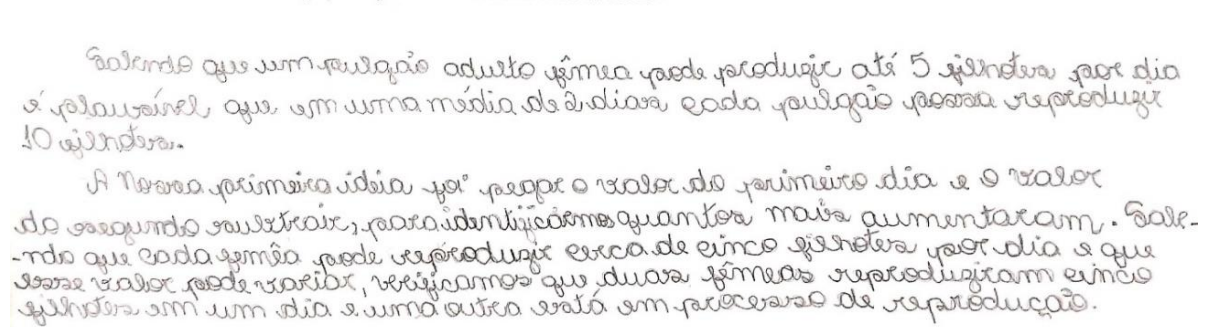 Sabendo que um pulgão adulto fêmea pode produzir até 5 filhotes por dia
é plausível, que em uma média de 2 dias cada pulgão possa reproduzir
10 filhotes.
A Nossa primeira idéia foi pegar o valor do primeiro dia e o valor
do segundo subtrair, para identificarmos quantos mais aumentaram. Sabe-
-ndo que cada femêa pode reproduzir cerca de cinco filhotes por dia e que
esse valor pode variar, verificamos que duas fêmeas reproduziram cinco
filhotes em um dia e uma outra está em processo de reprodução.